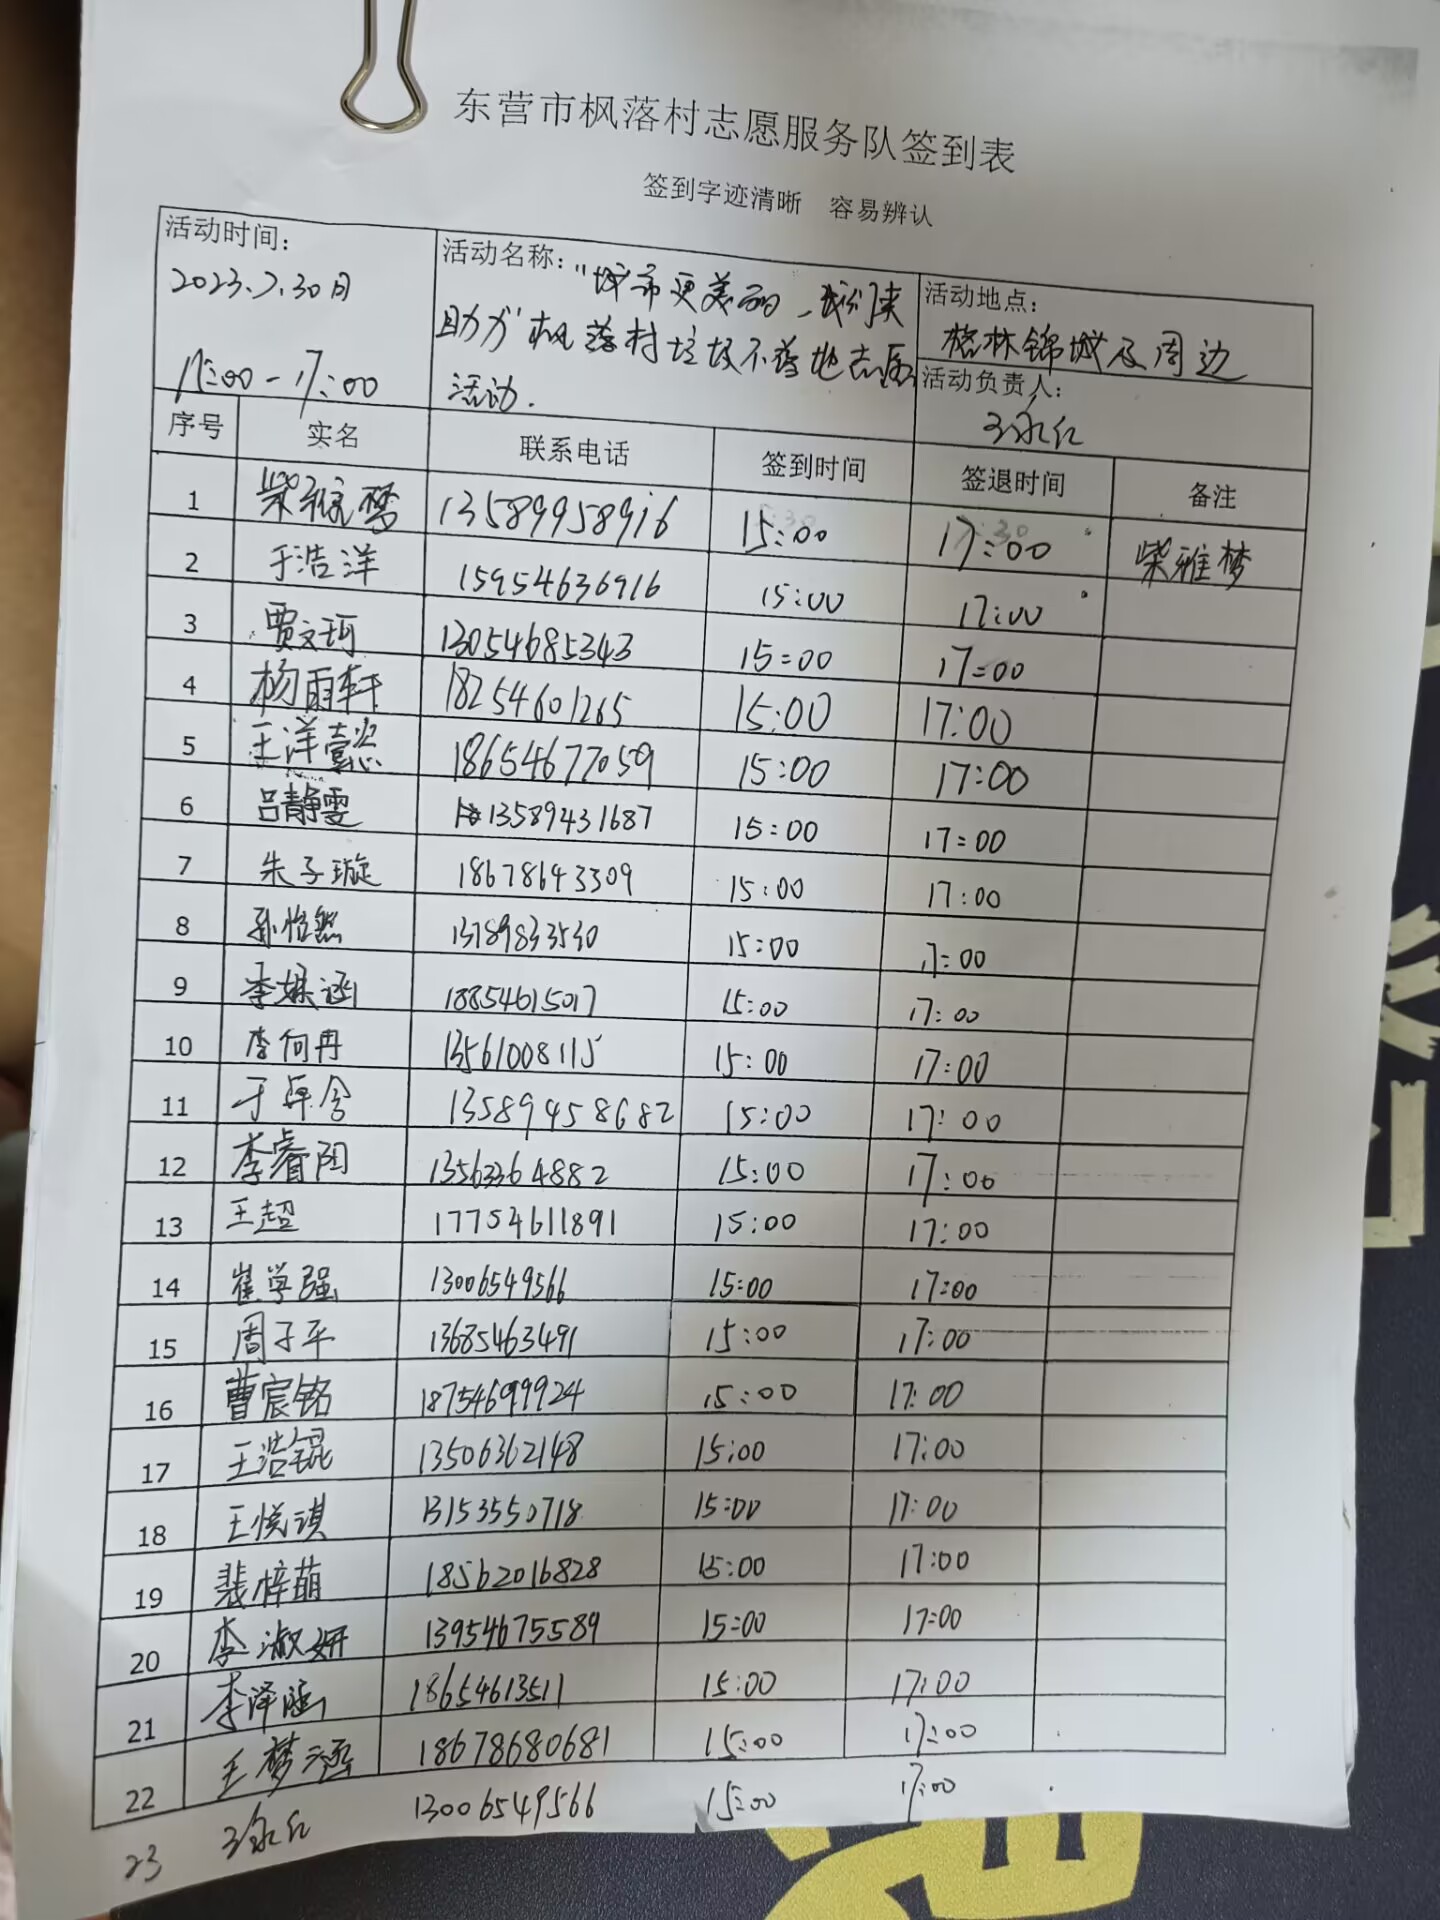 东营市枫落村志愿服务队签到表
签到字迹清晰 容易辨认
活动时间:
2023.7.30日
15:00-17:00
活动名称: "城市更美丽,我们来
助力"枫落村垃圾不落地志愿
活动.
活动地点:
格林锦城及周边
活动负责人:
王永红
序号 实名 联系电话 签到时间 签退时间 备注
1 柴雅梦 13589958916 15:00 17:00 柴雅梦
2 于浩洋 15954636916 15:00 17:00
3 贾文珂 13054685343 15:00 17:00
4 杨雨轩 18254601265 15:00 17:00
5 王洋懿 18654677059 15:00 17:00
6 吕静雯 13589431687 15:00 17:00
7 朱子璇 18678643309 15:00 17:00
8 孙怡然 13789833530 15:00 17:00
9 李姝涵 18854615017 15:00 17:00
10 李何冉 13561008115 15:00 17:00
11 于卓含 13589458682 15:00 17:00
12 李睿阳 13563364882 15:00 17:00
13 王超 17754611891 15:00 17:00
14 崔学强 13006549566 15:00 17:00
15 周子平 13685463491 15:00 17:00
16 曹宸铭 18754699924 15:00 17:00
17 王浩锟 13506362148 15:00 17:00
18 王悦琪 13153550718 15:00 17:00
19 裴梓萌 18562016828 15:00 17:00
20 李淑妍 13954675589 15:00 17:00
21 李泽 18654613511 15:00 17:00
22 王梦涵 18678680681 15:00 17:00
23 王永红 13006549566 15:00 17:00